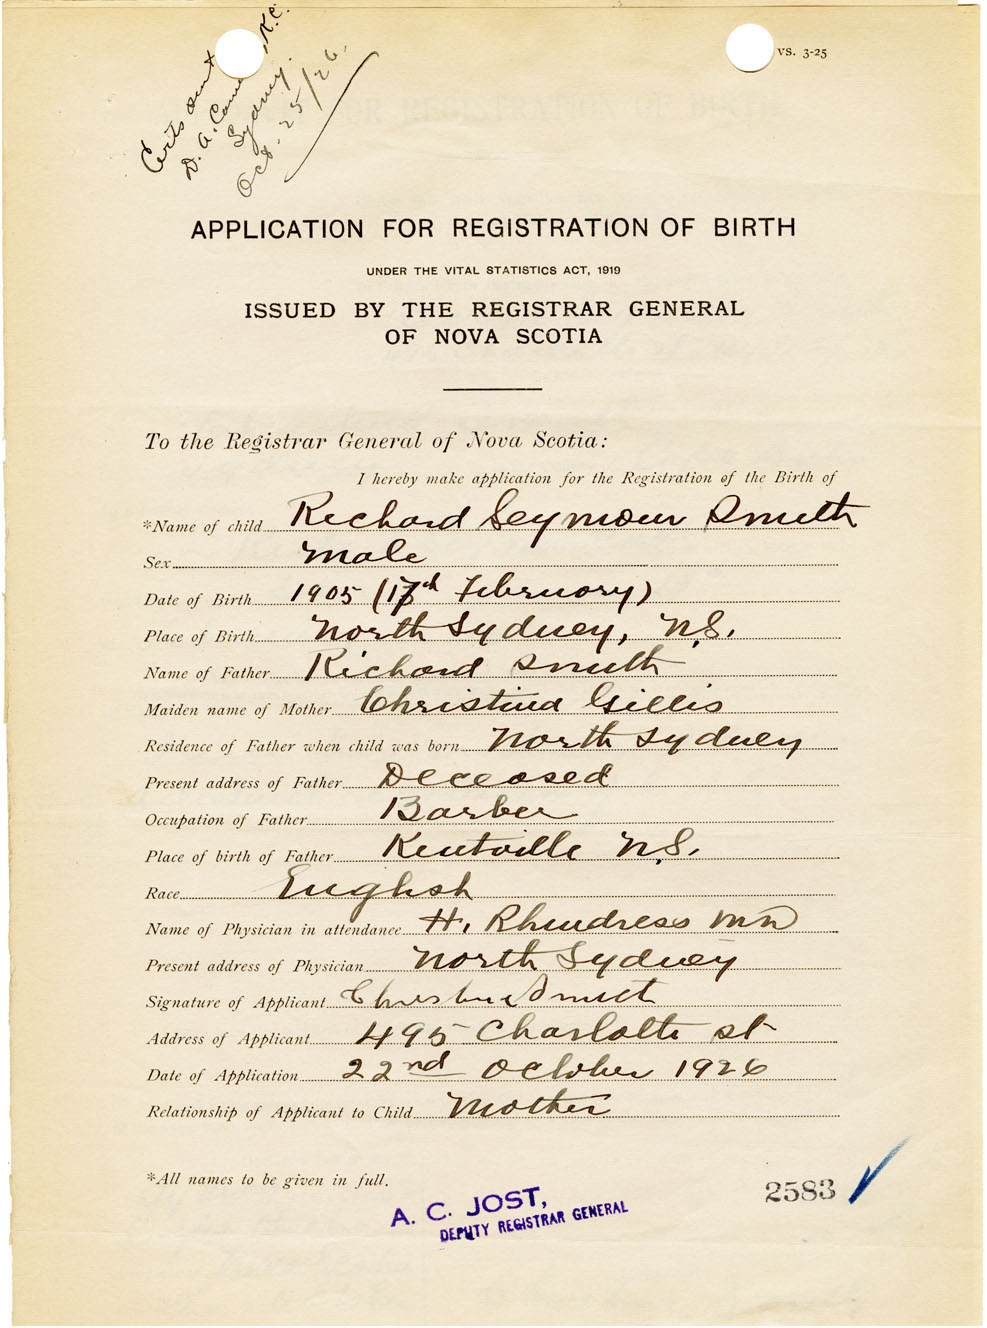 Certs sent
D. A. Came K.C.
Sydney.
Oct. 25/26.
VS. 3-25
APPLICATION FOR REGISTRATION OF BIRTH
UNDER THE VITAL STATISTICS ACT, 1919
ISSUED BY THE REGISTRAR GENERAL
OF NOVA SCOTIA
To the Registrar General of Nova Scotia:
I hereby make application for the Registration of the Birth of
*Name of child Richard Seymour Smith
Sex Male
Date of Birth 1905 (17th February)
Place of Birth North Sydney, N.S.
Name of Father Richard Smith
Maiden name of Mother Christina Gillis
Residence of Father when child was born North Sydney
Present address of Father Deceased
Occupation of Father Barber
Place of birth of Father Kentville N.S.
Race English
Name of Physician in attendance H. Rhindress MD
Present address of Physician North Sydney
Signature of Applicant Christina Smith
Address of Applicant 495 Charlotte st
Date of Application 22nd October 1926
Relationship of Applicant to Child Mother
*All names to be given in full.
2583
A. C. JOST,
DEPUTY REGISTRAR GENERAL